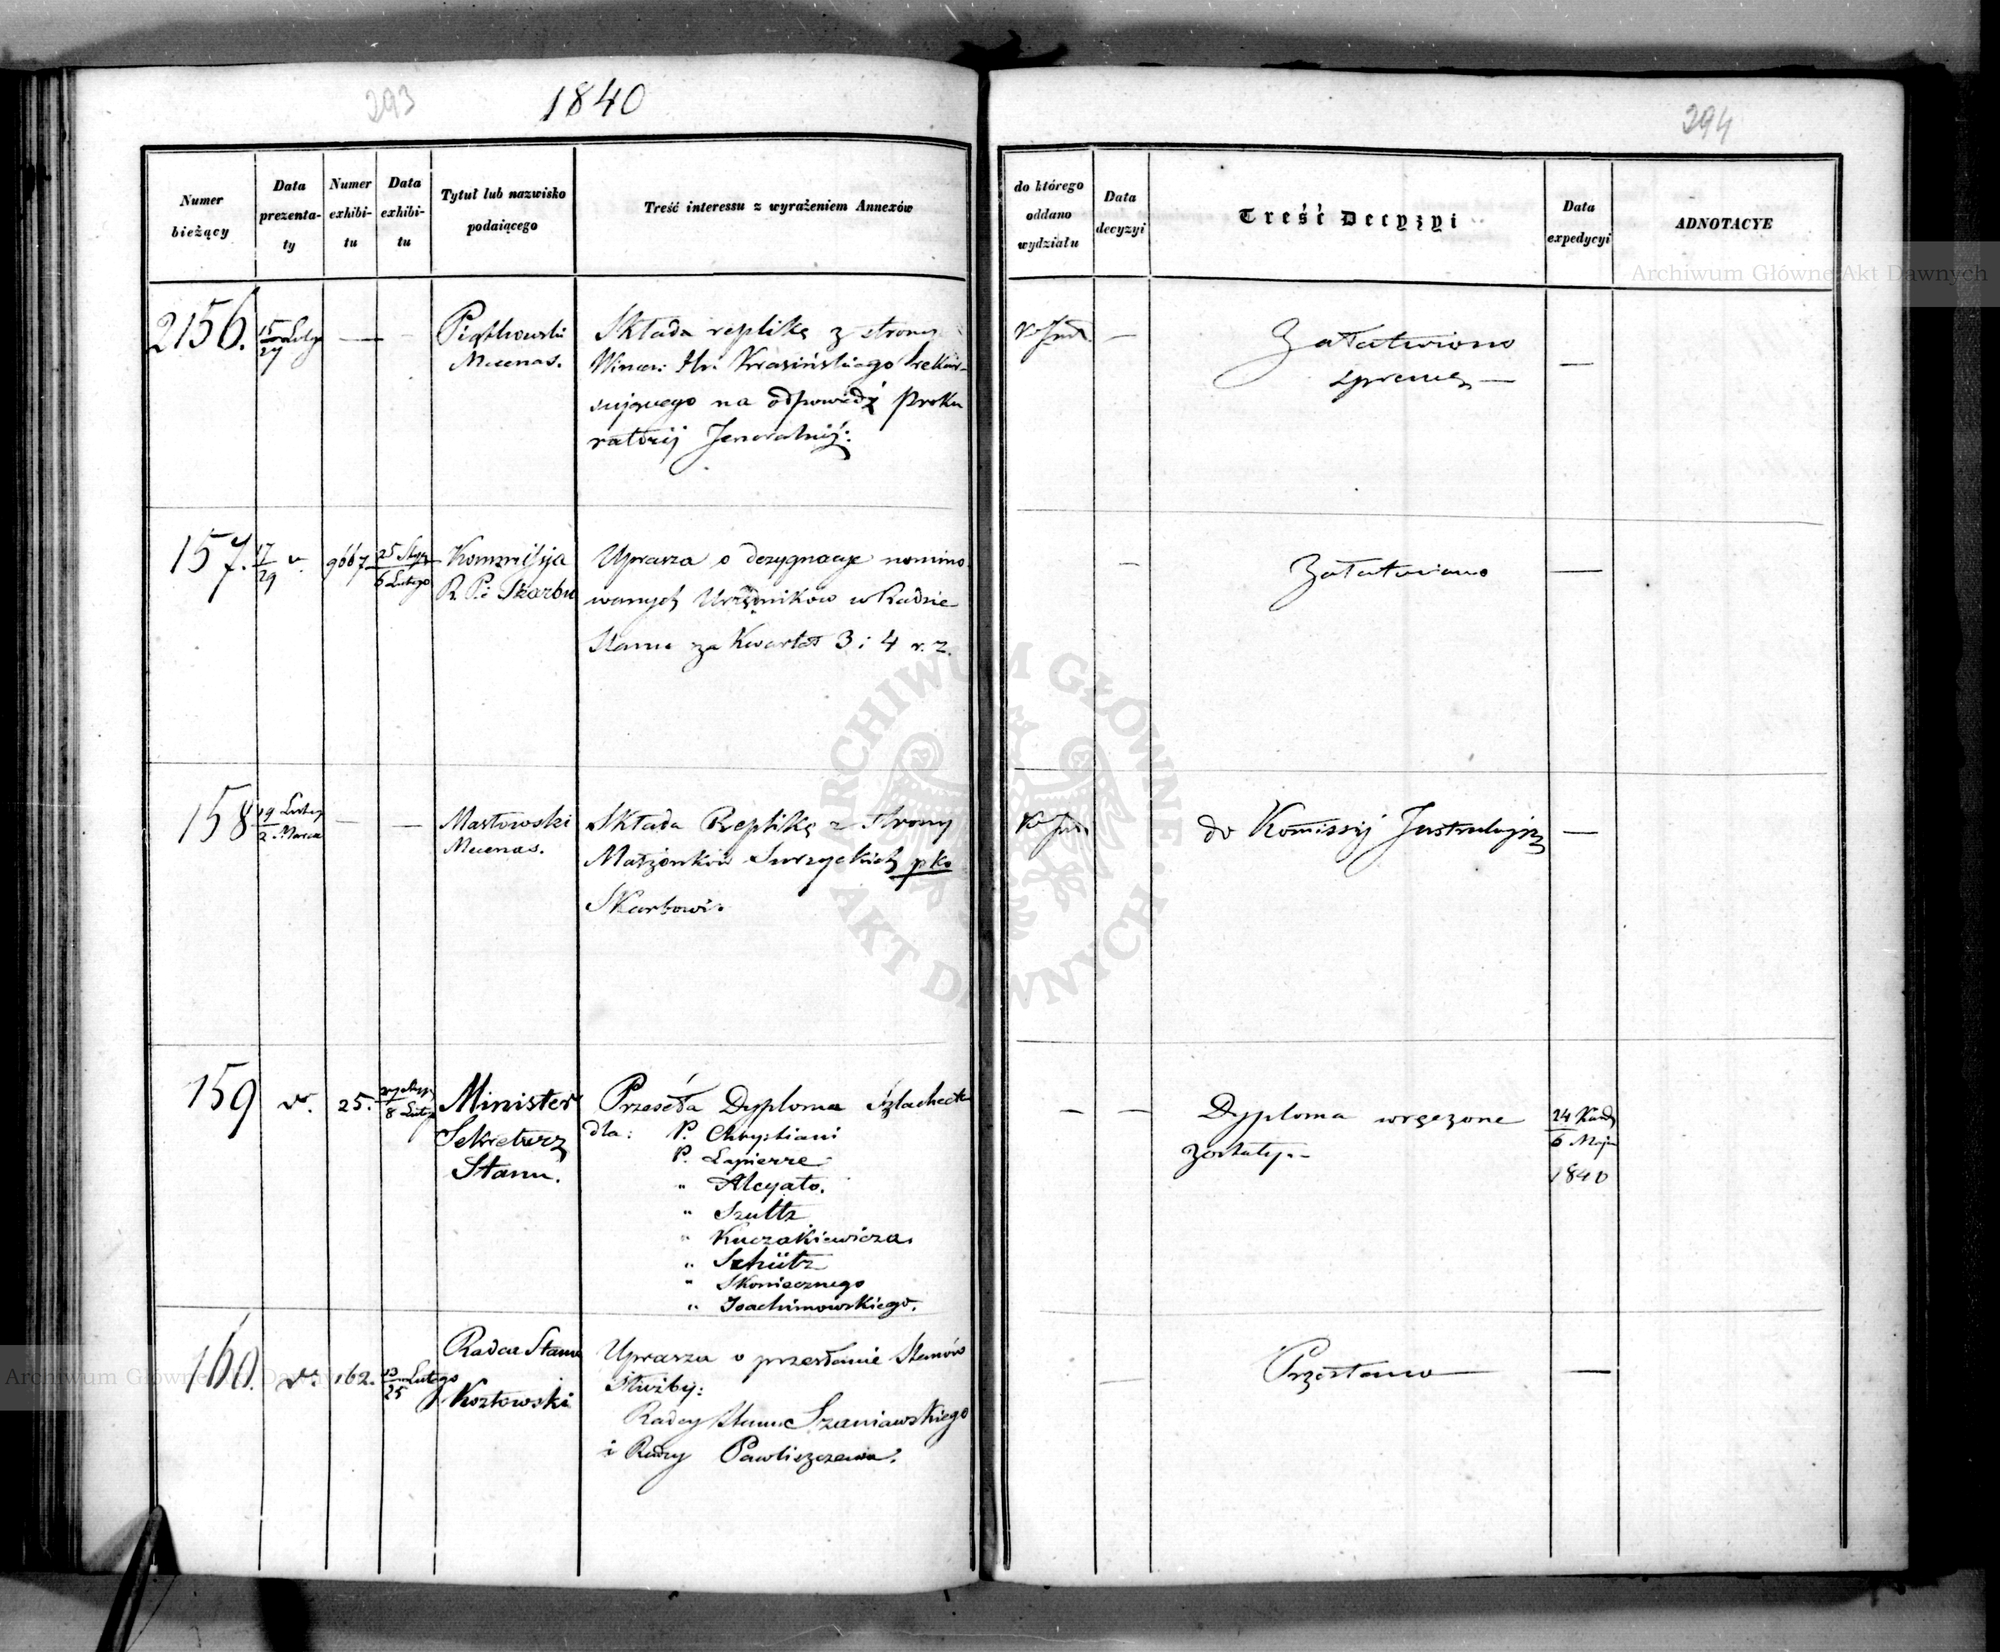 293
1840
Numer bieżący
Data prezenta- ty
Numer exhibi- tu
Data exhibi- tu
Tytuł lub nazwisko podaiącego
Treść interessu z wyrażeniem Annexów
2156.
15 Lutego
27
Piątkowski
Mecenas.
Składa replikę z strony
Wincen: Hr. Krasińskiego rekur-
sującego na odpowiedź Proku
ratorij Jeneralnéj:
157.
17
29
v.
9667
25 Stycz
6 Lutego
Kommissya
R. P. i Skarbu
Uprasza o dezygnacye nomino
wanych Urzędników w Radzie
Stanu za Kwartał 3 i 4 r. z.
158
19 Lutego
2 Marca
Masłowski
Mecenas.
Składa Replikę z Strony
Małżonków Surzyckich pko
Skarbowi.
159
v.
25.
27 Stycz
8 Luteg
Minister
Sekretarz
Stanu.
Przeséła Dyploma Szlacheck
dla: P. Chrystiani
P. Lapierre
" Alcyato.
" Szultz
" Kuczakiewicza.
" Schütz
" Skoniecznego
" Joachimowskiego.
160.
v.
162.
13 Lutego
25
Radca Stanu
Kozłowski
Uprasza o przesłanie Stanów
Służby:
Radcy Stanu Szaniawskiego
i Radcy Pawliszczewa.
294
do którego oddano wydziału
Data decyzyi
Treść Decyzyi
Data expedycyi
ADNOTACYE
Załatwiono
Załatwiono
do Komissij Instrukcyjnéj
Dyploma wręczone
zostały.
24 Kwie
6 Maja
1840
Przesłano
Archiwum Główne Akt Dawnych
ARCHIWUM GŁÓWNE AKT DAWNYCH
Archiwum Główne Akt Dawnych